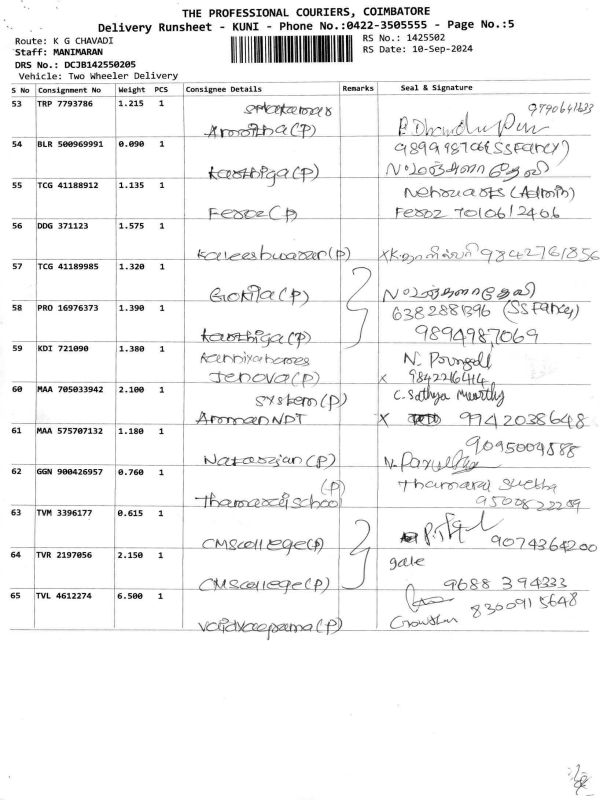 THE PROFESSIONAL COURIERS, COIMBATORE
Delivery Runsheet - KUNI - Phone No.:0422-3505555 - Page No.:5
Route: K G CHAVADI
RS No.: 1425502
Staff: MANIMARAN
RS Date: 10-Sep-2024
DRS No.: DCJB142550205
Vehicle: Two Wheeler Delivery
S No Consignment No Weight PCS Consignee Details Remarks Seal & Signature
53 TRP 7793786 1.215 1
9790641633
Amritha(P)
54 BLR 500969991 0.090 1
Karthiga(P)
55 TCG 41188912 1.135 1
Feroz(P) Feroz 7010612406
56 DDG 371123 1.575 1
Kaleeshwaran(P) 9842761856
57 TCG 41189985 1.320 1
Gokila(P)
58 PRO 16976373 1.390 1 6382881396 (SS Fancy)
Karthiga(P) 9894987069
59 KDI 721090 1.380 1
Jenova(P) X 9842216414
60 MAA 705033942 2.100 1 System(P) C. Sathya Moorthy
Amman NDT X 9942038648
61 MAA 575707132 1.180 1 9095009888
Natarajan(P)
62 GGN 900426957 0.760 1 (P)
Thamarai school 9500822209
63 TVM 3396177 0.615 1
CMS college(P) 9074364200
64 TVR 2197056 2.150 1 gate
CMS college(P) 9688394333
65 TVL 4612274 6.500 1 8300915648